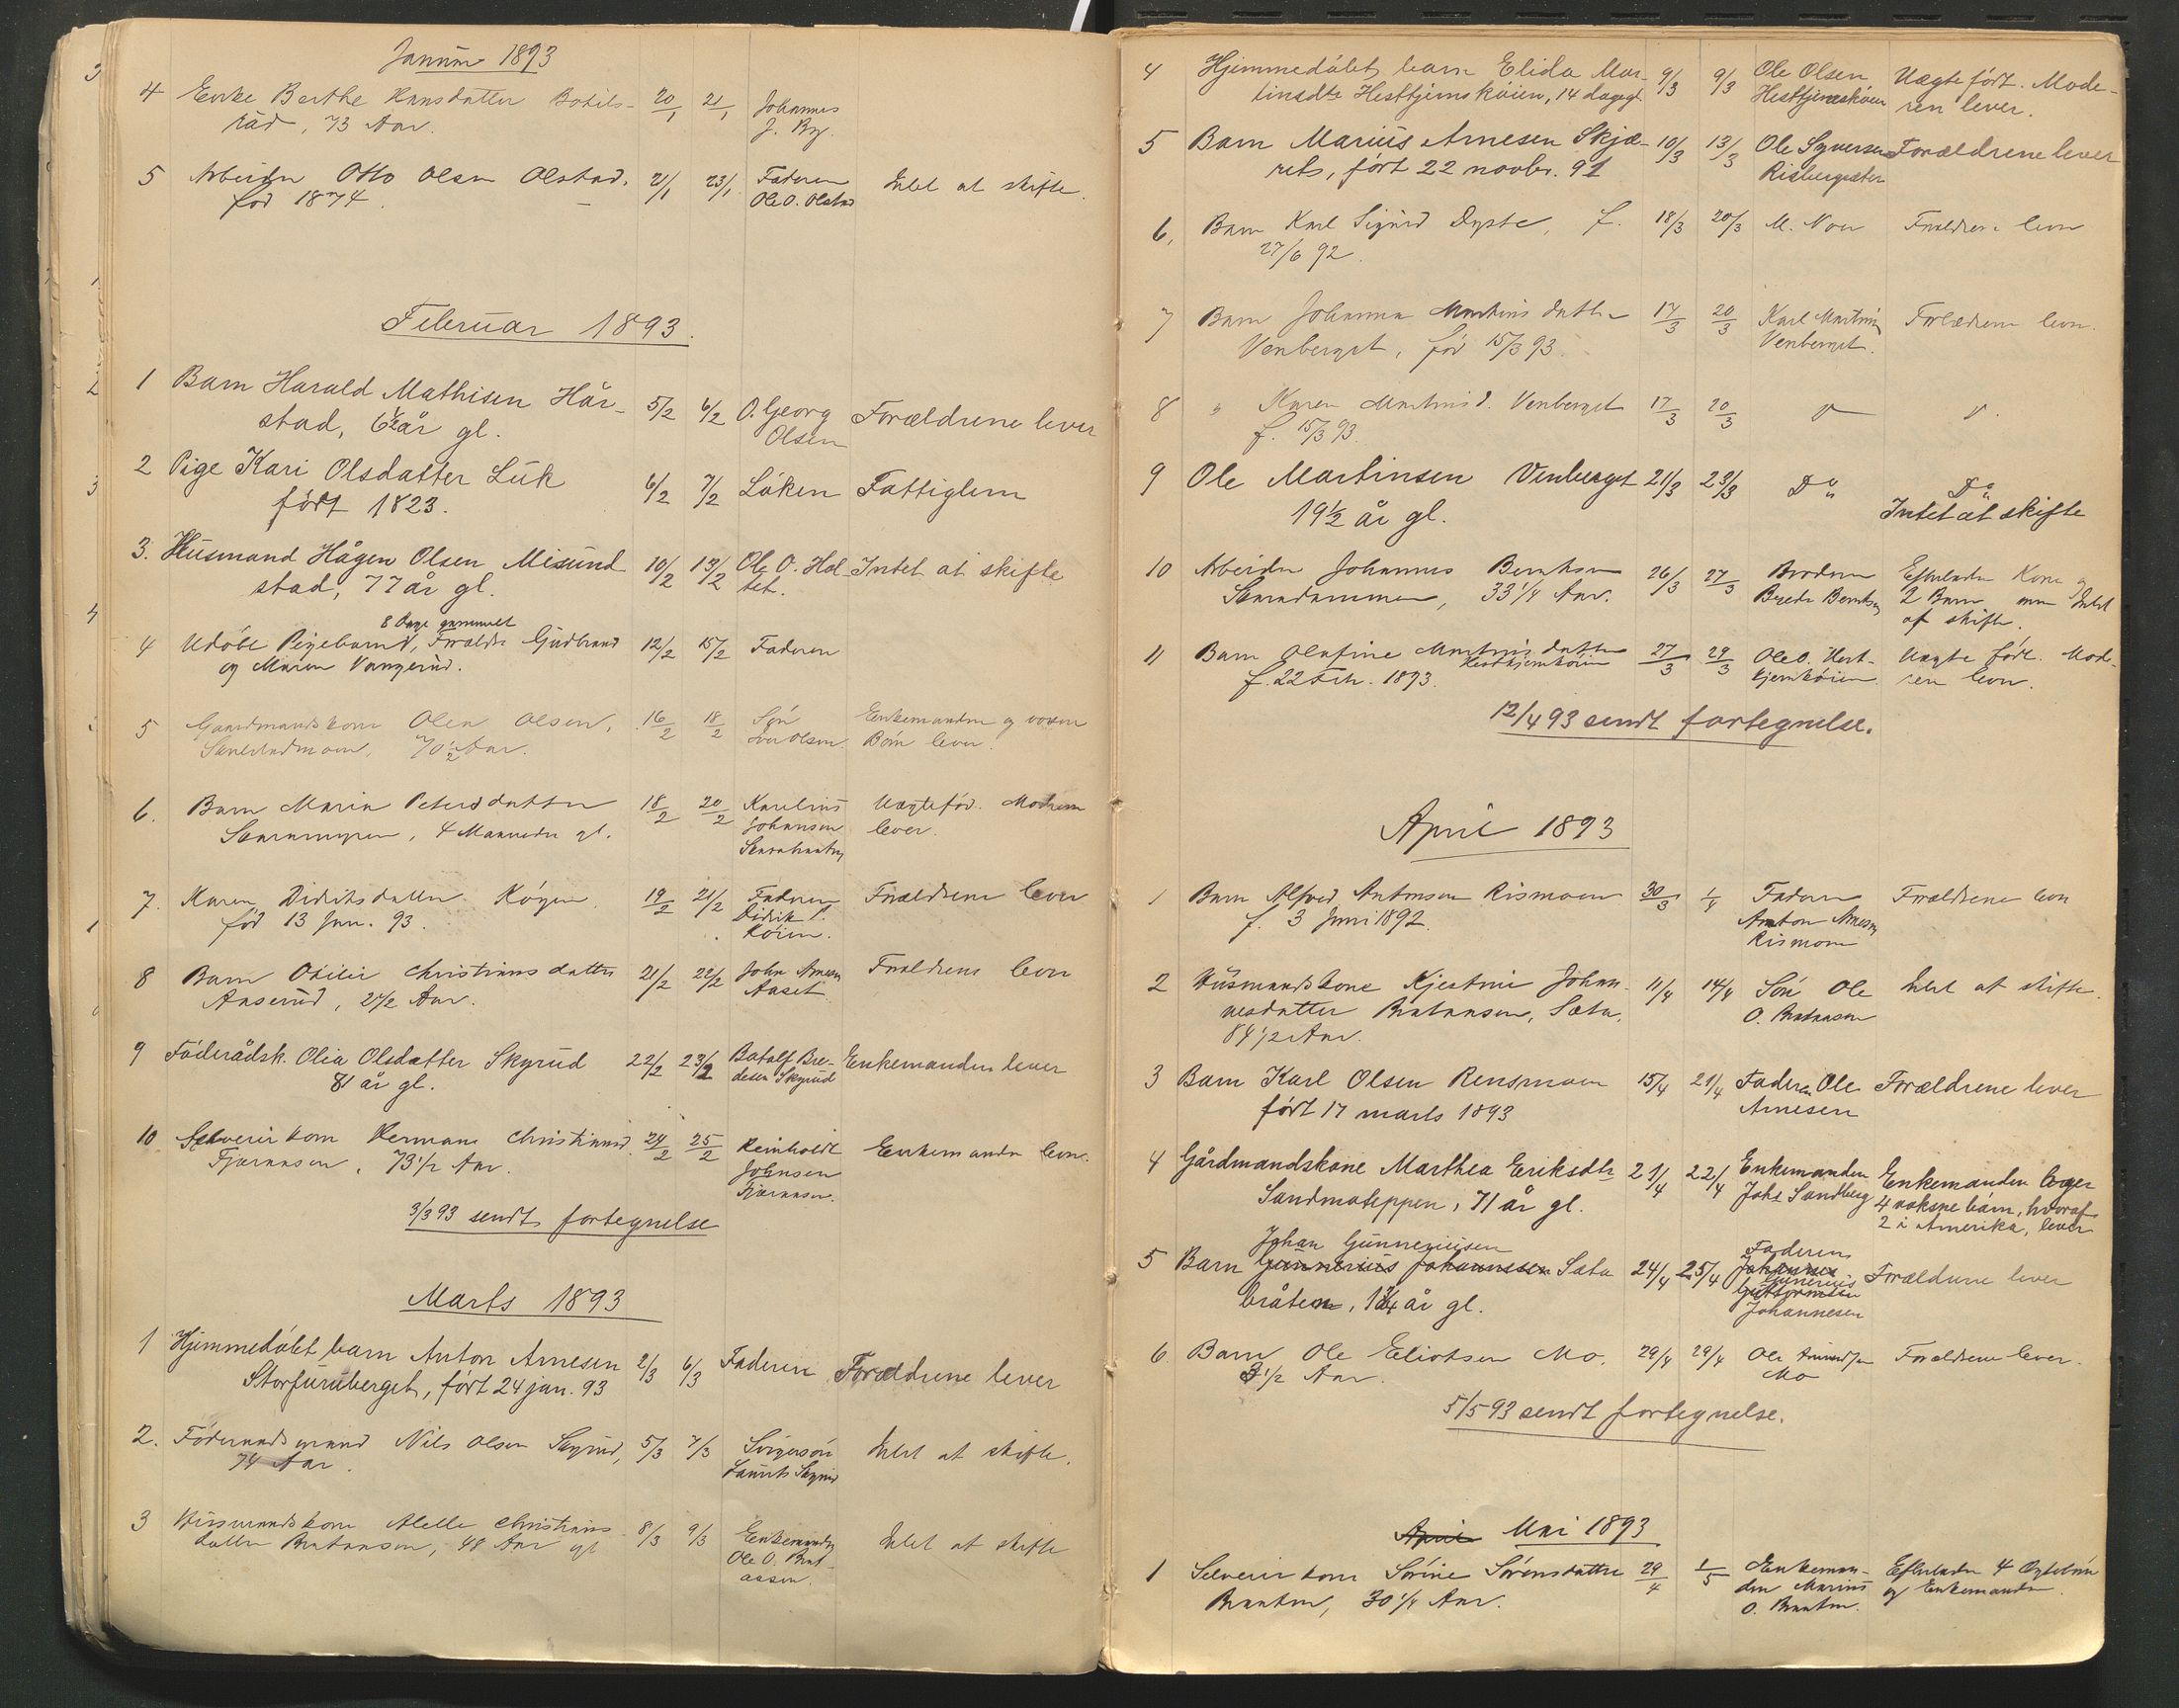 Januar 1893
4 Enke Berthe Hansdatter Botils- 20/1 21/1 Johannes
rud, 73 Aar. J. By.
5 Arbeider Otto Olsen Olstad. 21/1 23/1 Faderen Intet at skifte.
fød 1874. Ole O. Olstad
Februar 1893.
1 Barn Harald Mathisen Hår- 5/2 6/2 O. Georg Forældrene lever
stad, 6½ år gl. Olsen
2 Pige Kari Olsdatter Luk 6/2 7/2 Løken Fattiglem
født 1823.
3. Husmand Hågen Olsen Misund- 10/2 13/2 Ole O. Hol- Intet at skifte
stad, 77 år gl. tet.
8 Dage gammelt
4 Udøbt Pigebarn, Forældre Gudbrand 12/2 15/2 Faderen
og Maren Vangerud.
5 Gaardmandskone Olea Olsen, 16/2 18/2 Søn Enkemanden og voxne
70½ Aar. Iver Olsen. Børn lever.
6. Barn Maria Petersdatter 18/2 20/2 Karelius Uægtefød. Moderen
4 Maaneder gl. Johansen lever.
7. Karen Didriksdatter Køyen 19/2 21/2 Faderen Forældrene lever
fød 13 Jan. 93. Didrik
Køien.
8 Barn Otilie Christiansdatter 21/2 22/2 John Arnesen Forældrene lever
Aaserud, 2½ Aar. Aaset
9 Føderådsk. Olia Olsdatter Skyrud 22/2 23/2 Botolf Bre- Enkemanden lever
81 år gl. desen Skyrud
10. Selveierkone Hermana Christiansd. 24/2 25/2 Reinholdt Enkemanden lever.
Fjeraasen, 73½ Aar. Johnsen
Fjeraasen.
3/3 93 sendt fortegnelse
Marts 1893
1 Hjemmedøbt barn Anton Arnesen 2/3 6/3 Faderen Forældrene lever
Storfuruberget, født 24 jan. 93
2. Føderaadsmand Nils Olsen Skyrud, 5/3 7/3 Svigersøn Intet at skifte.
74 Aar. Laurits Skyrud
3 Husmandskone Alette Christians- 8/3 9/3 Enkemanden Intet at skifte
datter Brataasen, 48 Aar gl Ole O. Brat-
aasen.
4 Hjemmedøbt barn Elida Mar- 9/3 9/3 Ole Olsen Uægte født. Mode-
tinsdtr Hesttjernskøien, 14 dage gl. Hesttjernskøien ren lever.
5 Barn Marius Arnesen Skjæ- 10/3 13/3 Ole Syversen Forældrene lever
rets, født 22 novbr. 91 Risbergsæter
6, Barn Karl Sigurd Dyste, f. 18/3 20/3 M. Noer Forældrene lever
27/6 92.
7 Barn Johanna Martinsdatter 17/3 20/3 Karl Martinsen Forældrene lever.
Venberget, fød 15/3 93. Venberget.
8 " Karen Martinsd. Venberget 17/3 20/3
f. 15/3 93.
9 Ole Martinsen Venberget 21/3 23/3 Do Do
19½ år gl. Intet at skifte
10 Arbeider Johannes Berntsen 26/3 27/3 Broderen Efterlader Kone og
33¼ Aar. Brede Berntsen 2 Barn men Intet
at skifte.
11 Barn Olafine Martinsdatter 27/3 29/3 Ole O. Hest- Uægte født. Mod-
Hesttjernskøien
f. 22 Feb. 1893. tjernskøien. eren lever.
12/4 93 sendt fortegnelse.
April 1893
1 Barn Alfred Antonsen Rismoen 30/3 1/4 Faderen Forældrene lever
f. 3 Juni 1892. Anton Arnesen
Rismoen
2 Husmandskone Kjestine Johan- 11/4 14/4 Søn Ole Intet at skifte.
nesdatter Brataasen, Sæta, O. Brataasen
84½ Aar.
3 Barn Karl Olsen Rensmoen 15/4 21/4 Faderen Ole Forældrene lever
født 17 marts 1893 Arnesen
4 Gårdmandskone Marthea Eriksdtr 21/4 22/4 Enkemanden Enkemanden lever
Sandmoteppen, 71 år gl. Johs Sandberg 4 voksne børn, hvoraf
2 i Amerika, lever
Johan Gunneriusen Faderen
5 Barn Gunnerius Johannessen Sæta 24/4 25/4 Johannes Forældrene lever
Gunnerius
bråten, 1¾ år gl. Guttormsen
Johannesen
6 Barn Ole Eliotsen Mo. 29/4 29/4 Ole Amundsen Forældrene lever.
3½ Aar. Mo
5/5 93 sendt fortegnelse.
April Mai 1893
1 Selveierkone Sørine Sørensdatter 29/4 1/5 Enkeman- Efterlader 4 Ægtebørn
Braaten, 30¼ Aar. den Marius og Enkemanden.
O. Braaten.